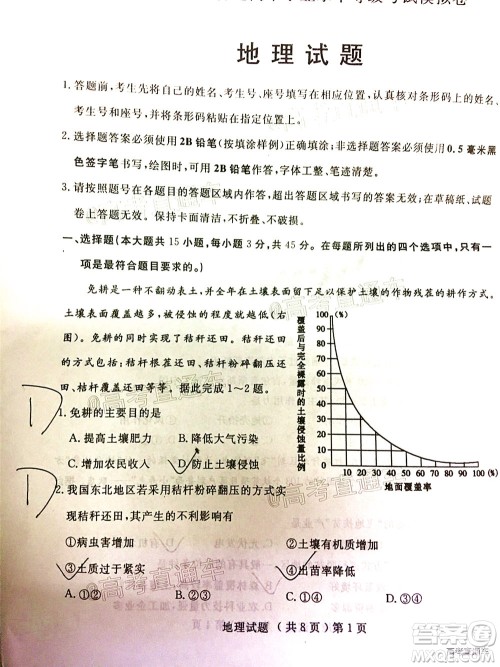 地理试题
1. 答题前,考生先将自己的姓名、考生号、座号填写在相应位置,认真核对条形码上的姓名、
考生号和座号,并将条形码粘贴在指定位置上。
2. 选择题答案必须使用2B铅笔(按填涂样例)正确填涂;非选择题答案必须使用0.5毫米黑
色签字笔书写,绘图时,可用2B铅笔作答,字体工整、笔迹清楚。
3. 请按照题号在各题目的答题区域内作答,超出答题区域书写的答案无效;在草稿纸、试题
卷上答题无效。保持卡面清洁,不折叠、不破损。
一、选择题(本大题共15小题,每小题3分,共45分。在每题所列出的四个选项中,只有一
项是最符合题目要求的。)
免耕是一种不翻动表土,并全年在土壤表面留下足以保护土壤的作物残茬的耕作方式。
土壤在被水、风侵蚀的程度就越低(右
图)。免耕的同时实现了秸秆还田,秸秆还田
的方式包括:秸秆根茬还田、秸秆粉碎翻压还
田、秸秆覆盖还田等等。据此完成1~2题。
D
1. 免耕的主要目的是
A. 提高土壤肥力 B. 降低大气污染
C. 增加农民收入 D. 防止土壤侵蚀
D
2. 我国东北地区若采用秸秆粉碎翻压的方式实
现秸秆还田,其产生的不利影响有
①病虫害增加 ②土壤有机质增加
③土质过于紧实 ④出苗率降低
A. ①② B. ①③ C. ②④ D. ③④
覆盖后与完全裸露时的土壤侵蚀量比例
100 (%)
90
80
70
60
50
40
30
20
10
10 20 30 40 50 60 70 80 90 100 (%)
地面覆盖率
地理试题 (共8页)第1页
高考直通车
答案圈